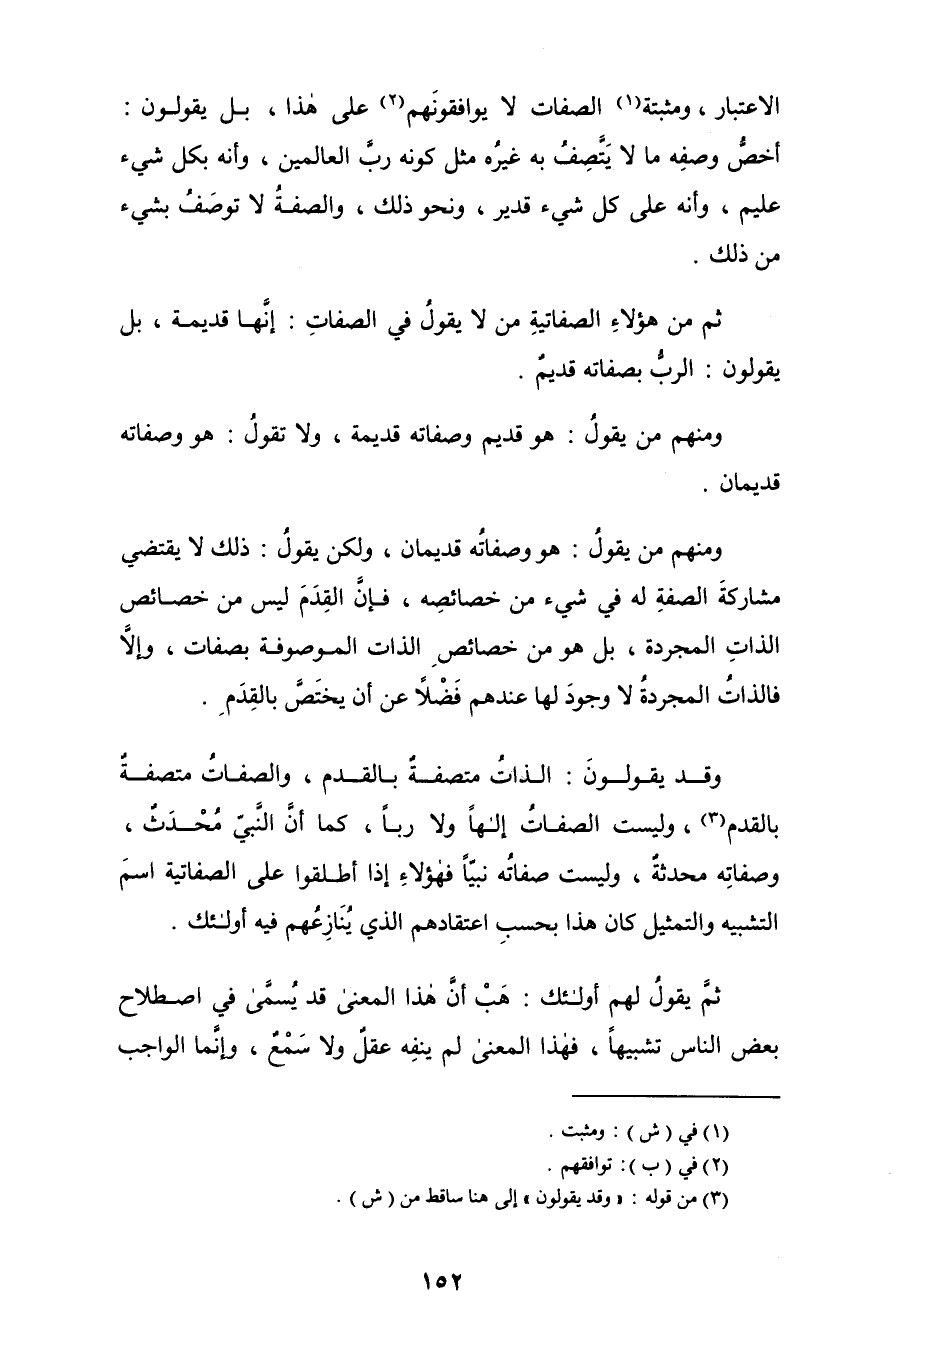 الاعتبار ، ومثبتة(١) الصفات لا يوافقونَهم(٢) على هٰذا ، بل يقولون :
أخصُّ وصفِه ما لا يَتَّصِفُ به غيرُه مثل كونه ربَّ العالمين ، وأنه بكل شيء
عليم ، وأنه على كل شيء قدير ، ونحو ذلك ، والصفةُ لا توصَفُ بشيء
من ذلك .
ثم من هؤلاءِ الصفاتيةِ من لا يقولُ في الصفاتِ : إنَّها قديمة ، بل
يقولون : الربُّ بصفاته قديمٌ .
ومنهم من يقولُ : هو قديم وصفاته قديمة ، ولا تقولُ : هو وصفاته
قديمان .
ومنهم من يقولُ : هو وصفاتُه قديمان ، ولكن يقولُ : ذلك لا يقتضي
مشاركةَ الصفةِ له في شيء من خصائصِه ، فإنَّ القِدَمَ ليس من خصائص
الذاتِ المجردة ، بل هو من خصائصِ الذات الموصوفة بصفات ، وإلَّا
فالذاتُ المجردةُ لا وجودَ لها عندهم فَضْلًا عن أن يختَصَّ بالقِدَمِ .
وقد يقولونَ : الذاتُ متصفةٌ بالقدم ، والصفاتُ متصفةٌ
بالقدم(٣) ، وليست الصفاتُ إلٰهاً ولا رباً ، كما أنَّ النَّبيّ مُحْدَثٌ ،
وصفاتِه محدثةٌ ، وليست صفاتُه نبيّاً فهٰؤلاءِ إذا أطلقوا على الصفاتية اسمَ
التشبيه والتمثيل كان هذا بحسبِ اعتقادهم الذي يُنَازِعُهم فيه أولئك .
ثمَّ يقولُ لهم أولئك : هَبْ أنَّ هٰذا المعنىٰ قد يُسمَّىٰ في اصطلاح
بعض الناس تشبيهاً ، فهٰذا المعنىٰ لم ينفِه عقلٌ ولا سَمْعٌ ، وإنَّما الواجب
(١) في ( ش ) : ومثبت .
(٢) في ( ب ) : توافقهم .
(٣) من قوله : « وقد يقولون » إلى هنا ساقط من ( ش ) .
١٥٢